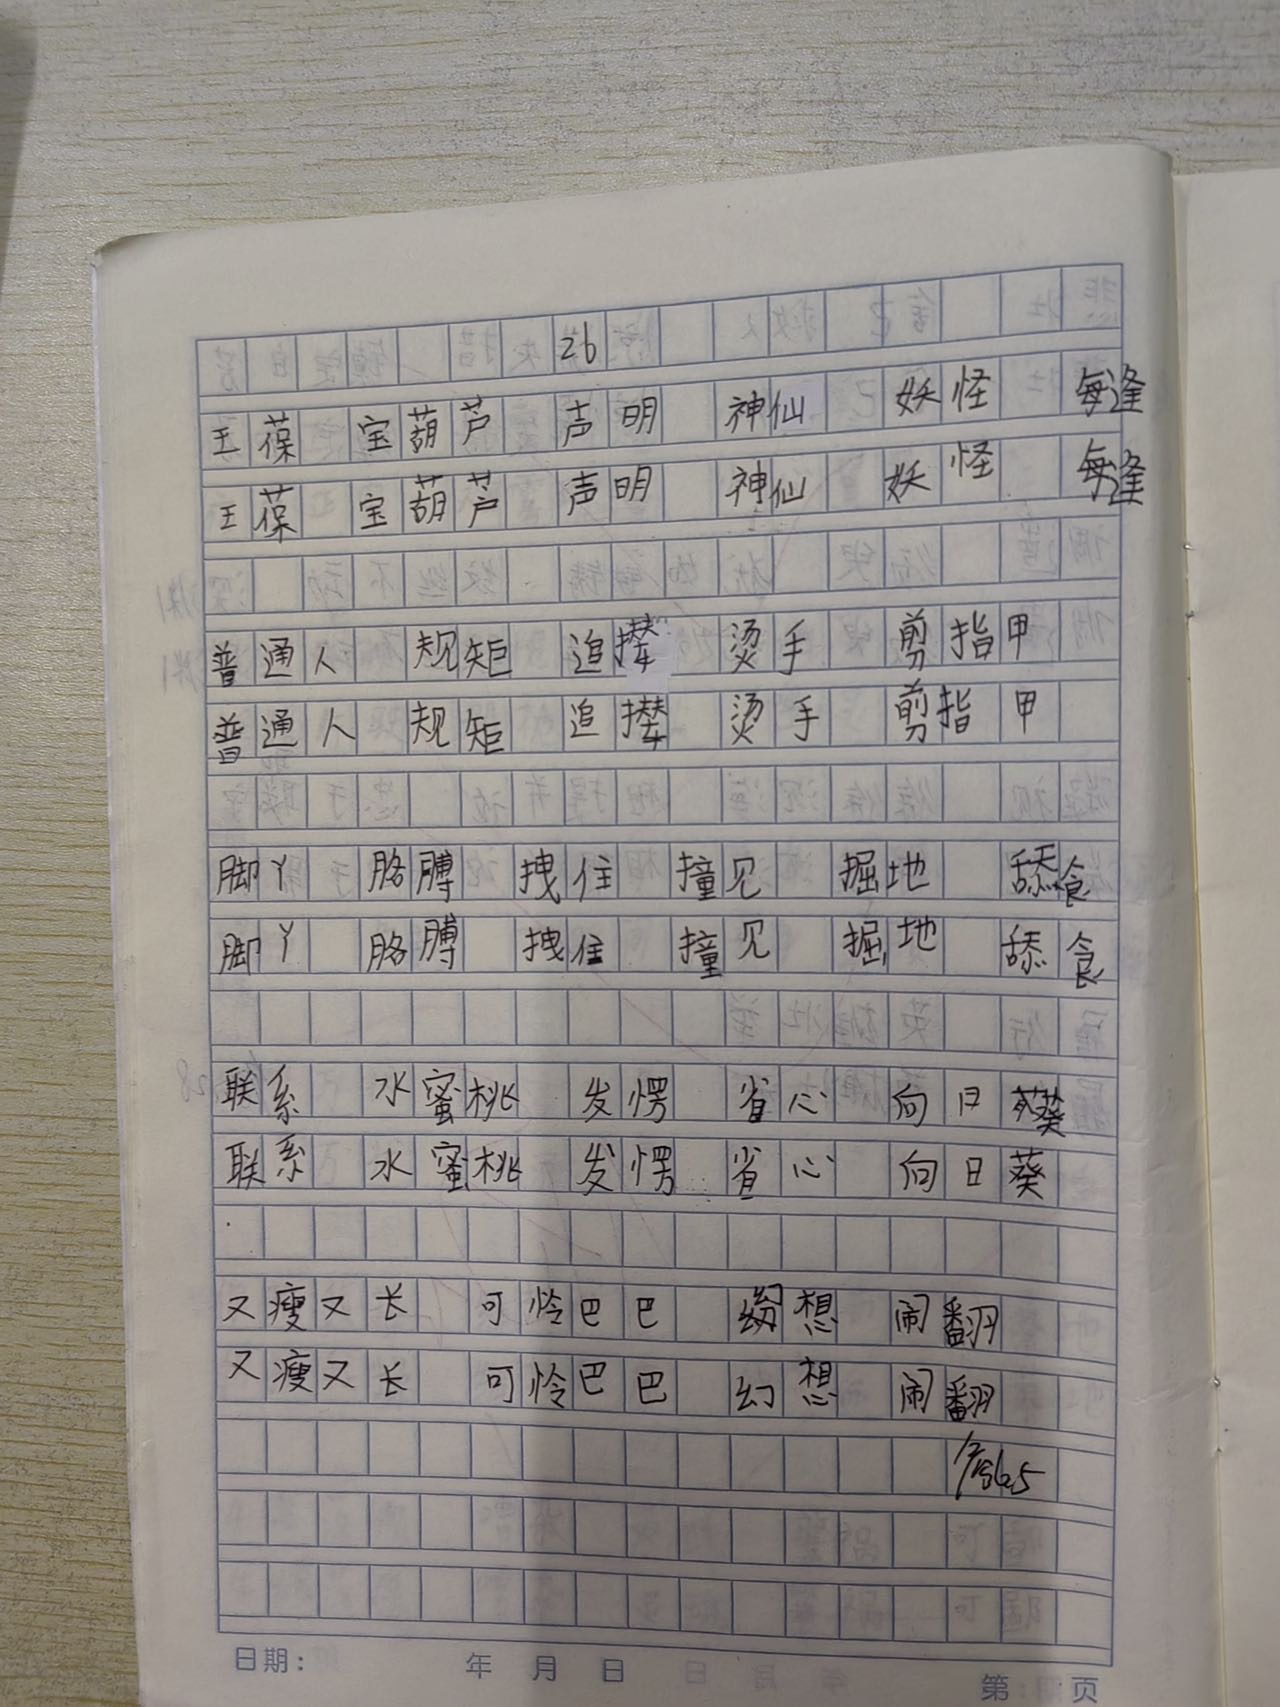 26
王葆 宝葫芦 声明 神仙 妖怪 每逢
王葆 宝葫芦 声明 神仙 妖怪 每逢
普通人 规矩 追撵 烫手 剪指甲
普通人 规矩 追撵 烫手 剪指甲
脚丫 胳膊 拽住 撞见 掘地 舔食
脚丫 胳膊 拽住 撞见 掘地 舔食
联系 水蜜桃 发愣 省心 向日葵
联系 水蜜桃 发愣 省心 向日葵
又瘦又长 可怜巴巴 幻想 闹翻
又瘦又长 可怜巴巴 幻想 闹翻
日期: 年 月 日
第 页